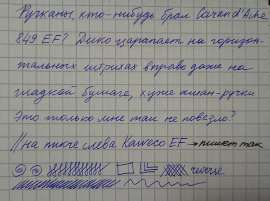 Ручканы, кто-нибудь брал Caran d'Ache
849 EF? Дико царапает на горизон-
тальных штрихах вправо даже на
гладкой бумаге, хуже ручки
Это только мне так не повезло?
// на фото слева Kaweco EF → пишет так